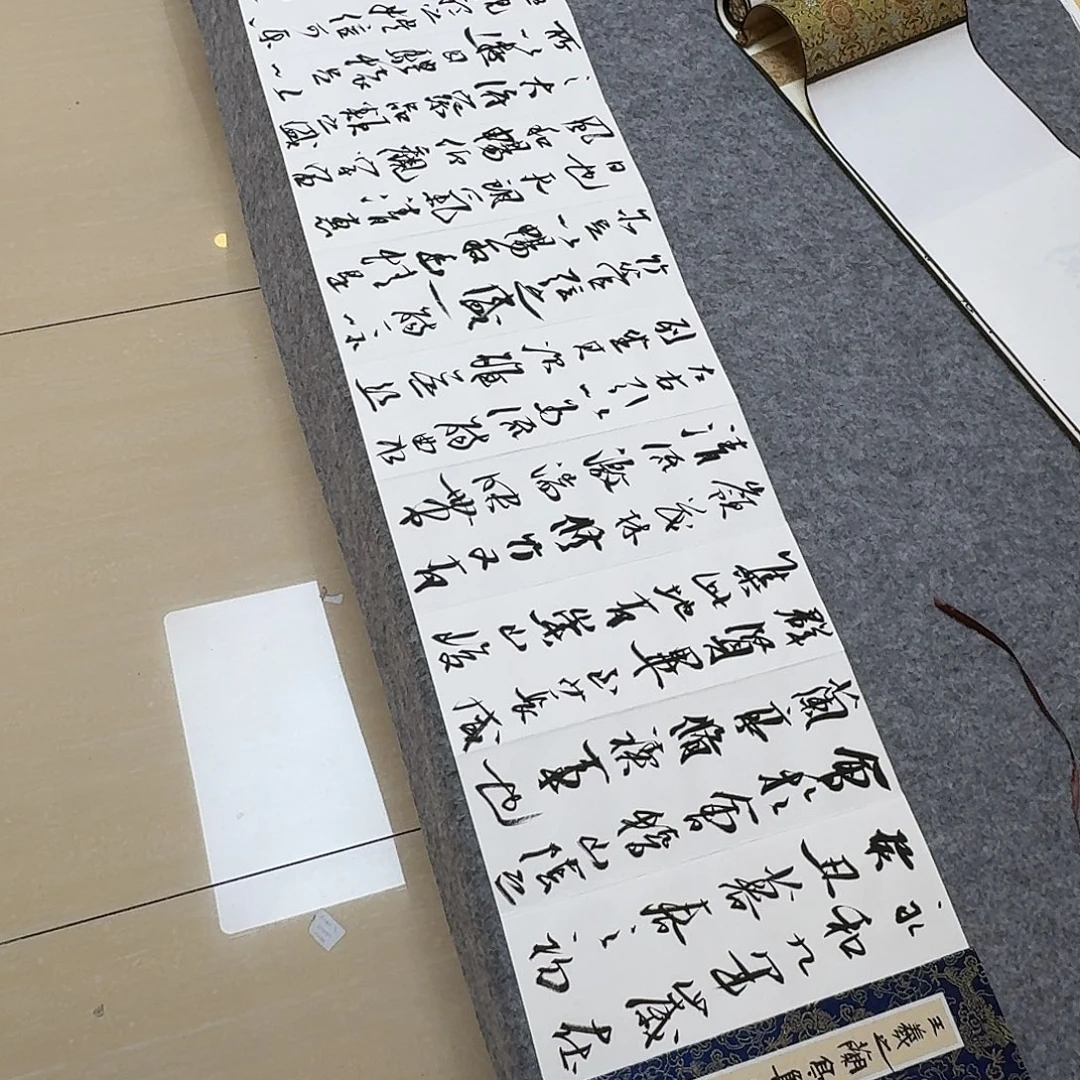 王羲之蘭亭
永和九年歲在
癸丑暮春之初
會於會稽山陰之
蘭亭脩禊事也
群賢畢至少長咸
集此地有崇山峻
嶺茂林修竹又有
清流激湍映帶
左右引以為流觴曲水
列坐其次雖無絲
竹管弦之盛一觴一詠
亦足以暢敘幽情是
日也天朗氣清惠
風和暢仰觀宇宙
之大俯察品類之盛
所以遊目騁懷足以
視聽之娛信可樂